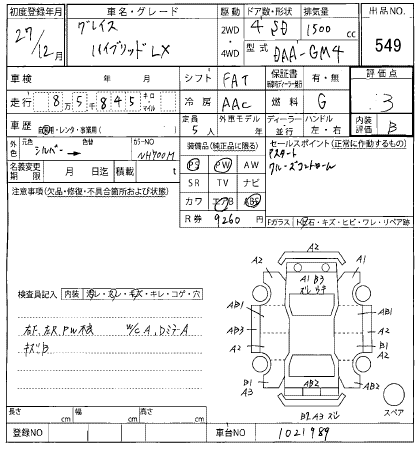 初度登録年月 車名・グレード 駆動 ドア数・形状 排気量 出品NO.
27/12月 グレイス ハイブリッド LX 2WD 4WD 4 SD 1500 cc 549
型式 DAA-GM4
車検 年 月 シフト FAT 保証書 有・無 評価点
走行 8万5千845 キロ マイル 冷房 AAC 燃料 G 3
車歴 自家用・レンタ・事業用( ) 定員 5人 外車モデル 年 ディーラー 並行 ハンドル 左・右 内装評価 B
外色 元色 シルバー 色替 カラーNO NH700M 装備品(純正品に限る) セールスポイント(正常に作動するもの)
名義変更期限 月 日迄 積載 t PS PW AW Pスタート
クルーズコントロール
注意事項(欠品・修復・不具合箇所および状態) SR TV ナビ
カワ エアB ABS
R券 9260円 Fガラス トビ石・キズ・ヒビ・ワレ・リペア跡
検査員記入 内装 汚レ・スレ・キズ・キレ・コゲ・穴
A2 A2
A1 B3 A1
AB1 AB1
AB3 B1
A2 A2
B1 A3 AB2 A1
B2 A3
スペア
キズB
長さ cm 幅 cm 高さ cm
登録NO 車台NO 1021989